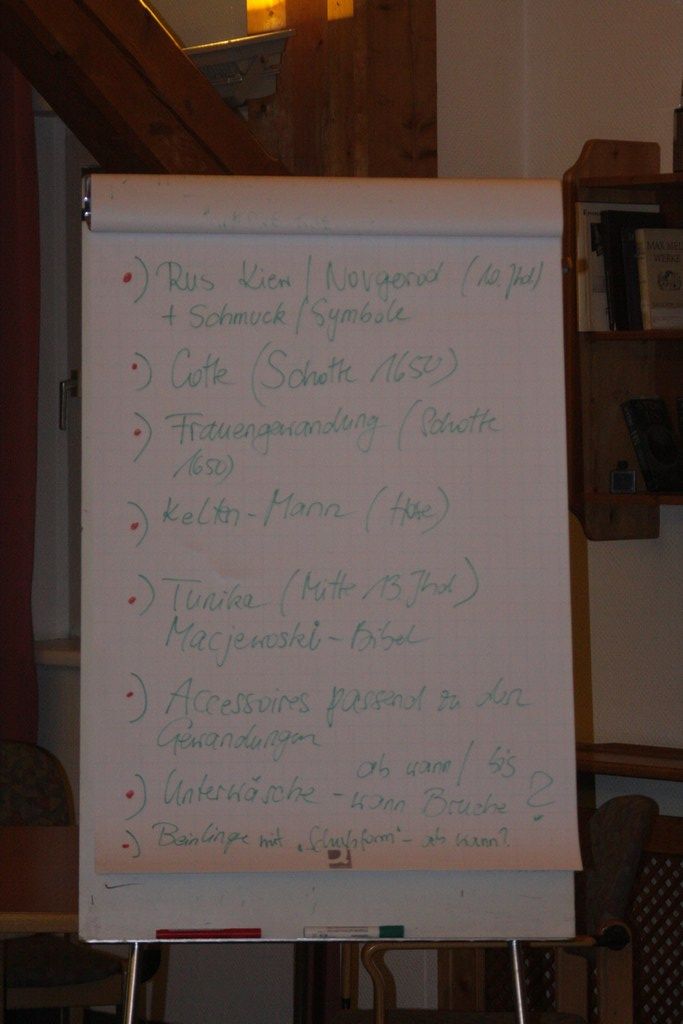 •) Rus Kiew / Novgorod (10. Jhd)
+ Schmuck / Symbole
•) Cotte (Schotte 1650)
•) Frauengewandung (Schotte
1650)
•) Kelten-Mann (Hose)
•) Tunika (Mitte 13. Jhd)
Macjewoski-Bibel
•) Accessoires passend zu den
Gewandungen
•) Unterwäsche - ab wann / bis
wann Bruche ?
•) Beinlinge mit "Schupfform" - ab wann?
MAX
WERKE